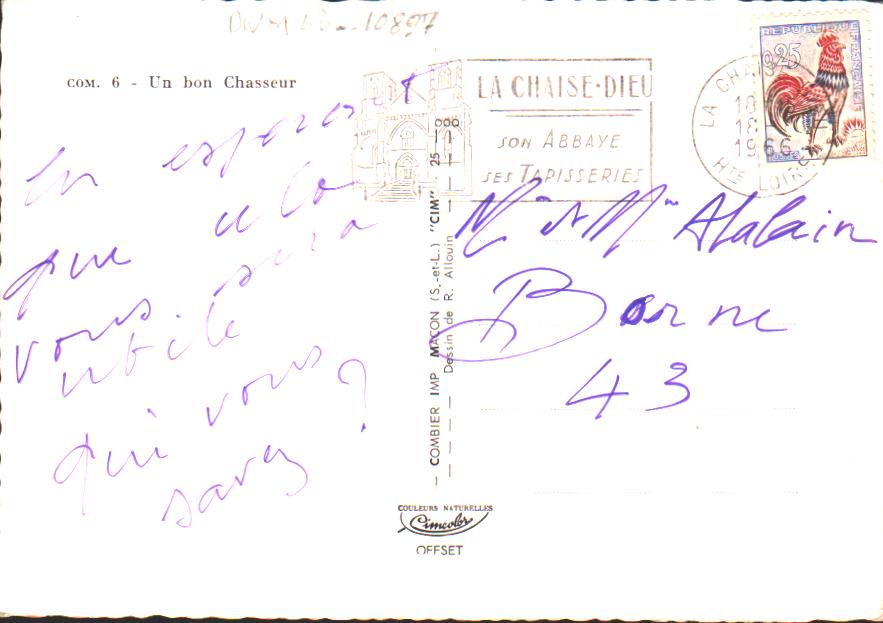 DWM 43 - 10897
COM. 6 - Un bon Chasseur
En esperant
que cela
vous sera
utile
qui vous
savez ?
LA CHAISE-DIEU
SON ABBAYE
SES TAPISSERIES
LA CHAISE
18
18
1966
HTE LOIRE
REPUBLIQUE FRANCAISE
0,25
Mr et Mme Alalain
Borne
43
COMBIER IMP MACON (S.-et-L.) "CIM"
Dessin de R. Allouin
25
COULEURS NATURELLES
Cimcolor
OFFSET